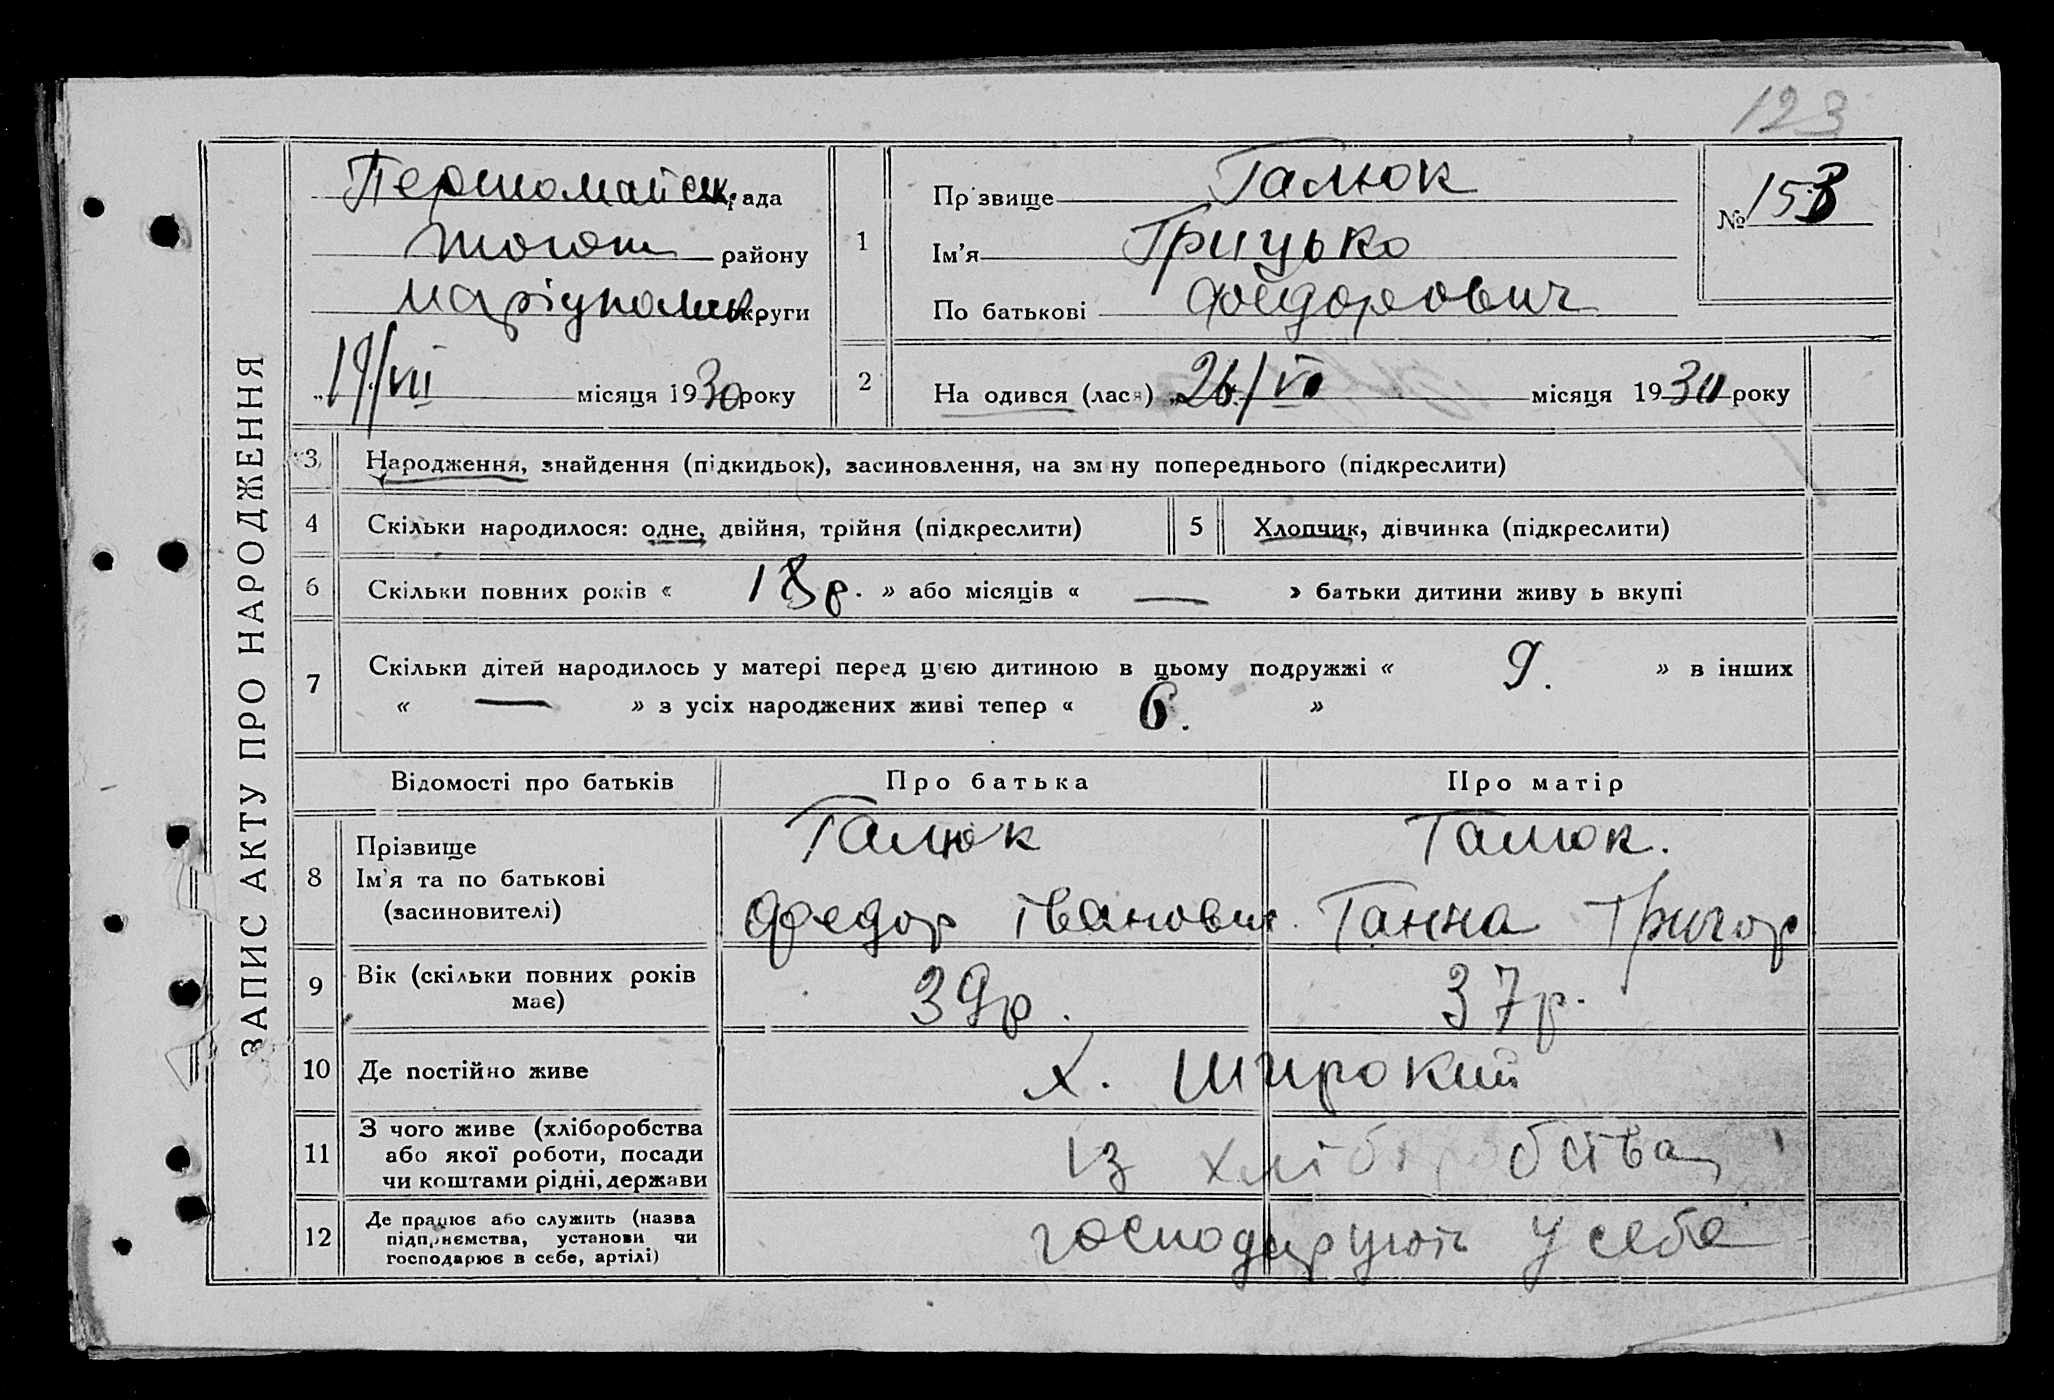 123
ЗАПИС АКТУ ПРО НАРОДЖЕННЯ
Першомайськ рада
тогом району
Маріупольс округи
„19/VII місяця 1930 року
1
Пр звище Галюк
Ім'я Грицько
По батькові Федорович
№ 153
2
На одився (лася) „26/VI місяця 1930 року
3 Народження, знайдення (підкидьок), засиновлення, на зм ну попереднього (підкреслити)
4 Скільки народилося: одне, двійня, трійня (підкреслити)
5 Хлопчик, дівчинка (підкреслити)
6 Скільки повних років « 18 р. » або місяців « — » батьки дитини живу ь вкупі
7 Скільки дітей народилось у матері перед цією дитиною в цьому подружжі « 9. » в інших
« — » з усіх народжених живі тепер « 6. »
Відомості про батьків Про батька Про матір
8 Прізвище
Ім'я та по батькові
(засиновителі)
Галюк
Федор Іванович
Галюк.
Ганна Григор
9 Вік (скільки повних років
має)
39 р. 37 р.
10 Де постійно живе Х. Широкий
11 З чого живе (хліборобства
або якої роботи, посади
чи коштами рідні, держави
із хліборобства
12 Де працює або служить (назва
підприємства, установи чи
господарює в себе, артілі)
господарують у себе